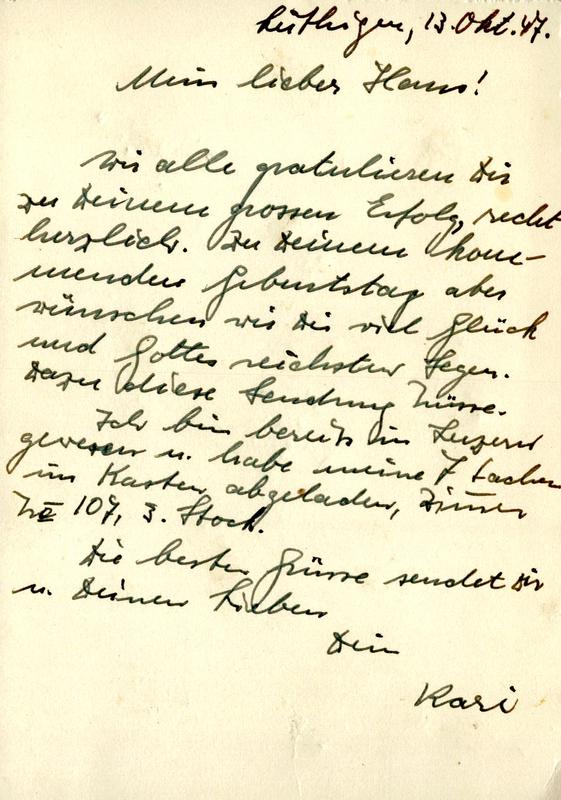 Lüthigen, 13. Okt. 47.
Mein lieber Hans!
Wir alle gratulieren Dir
zu Deinem grossen Erfolg, recht
herzlich. Zu Deinem kom-
menden Geburtstag aber
wünschen wir Dir viel Glück
und Gottes reichsten Segen.
Dazu diese Sendung Nüsse.
Ich bin bereits in Luzern
gewesen u. habe meine 7 Sachen
im Kasten abgeladen, Zimmer
No 107, 3. Stock.
Die besten Grüsse sendet Dir
u. Deinen Lieben
Dein
Kari